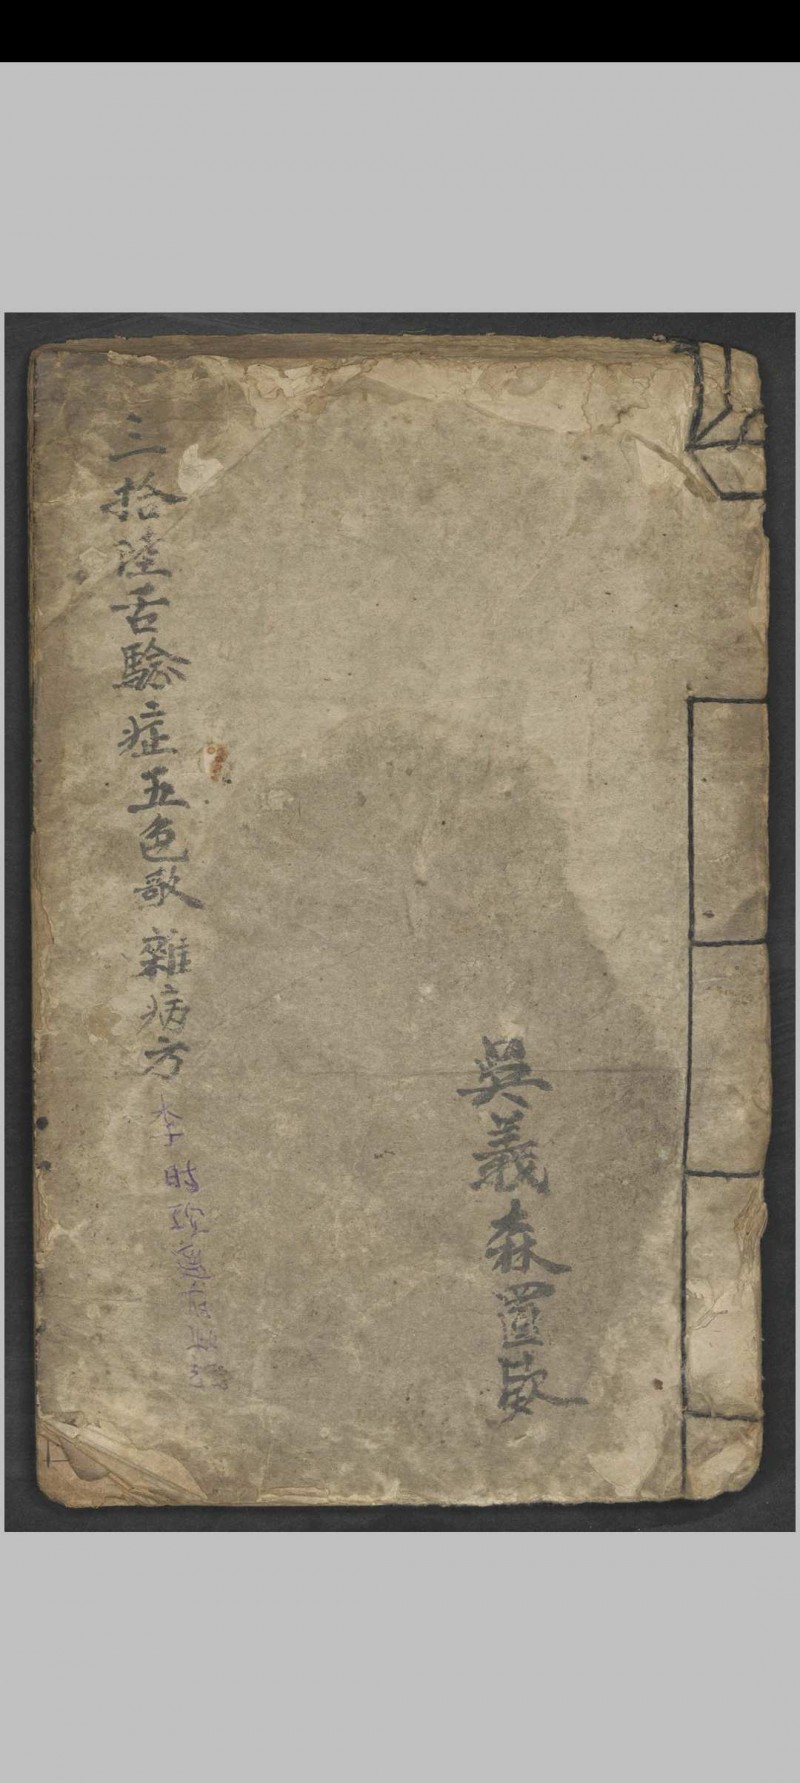 吳義森置
三拾陸舌驗症五色歌 雜病方 李時珍